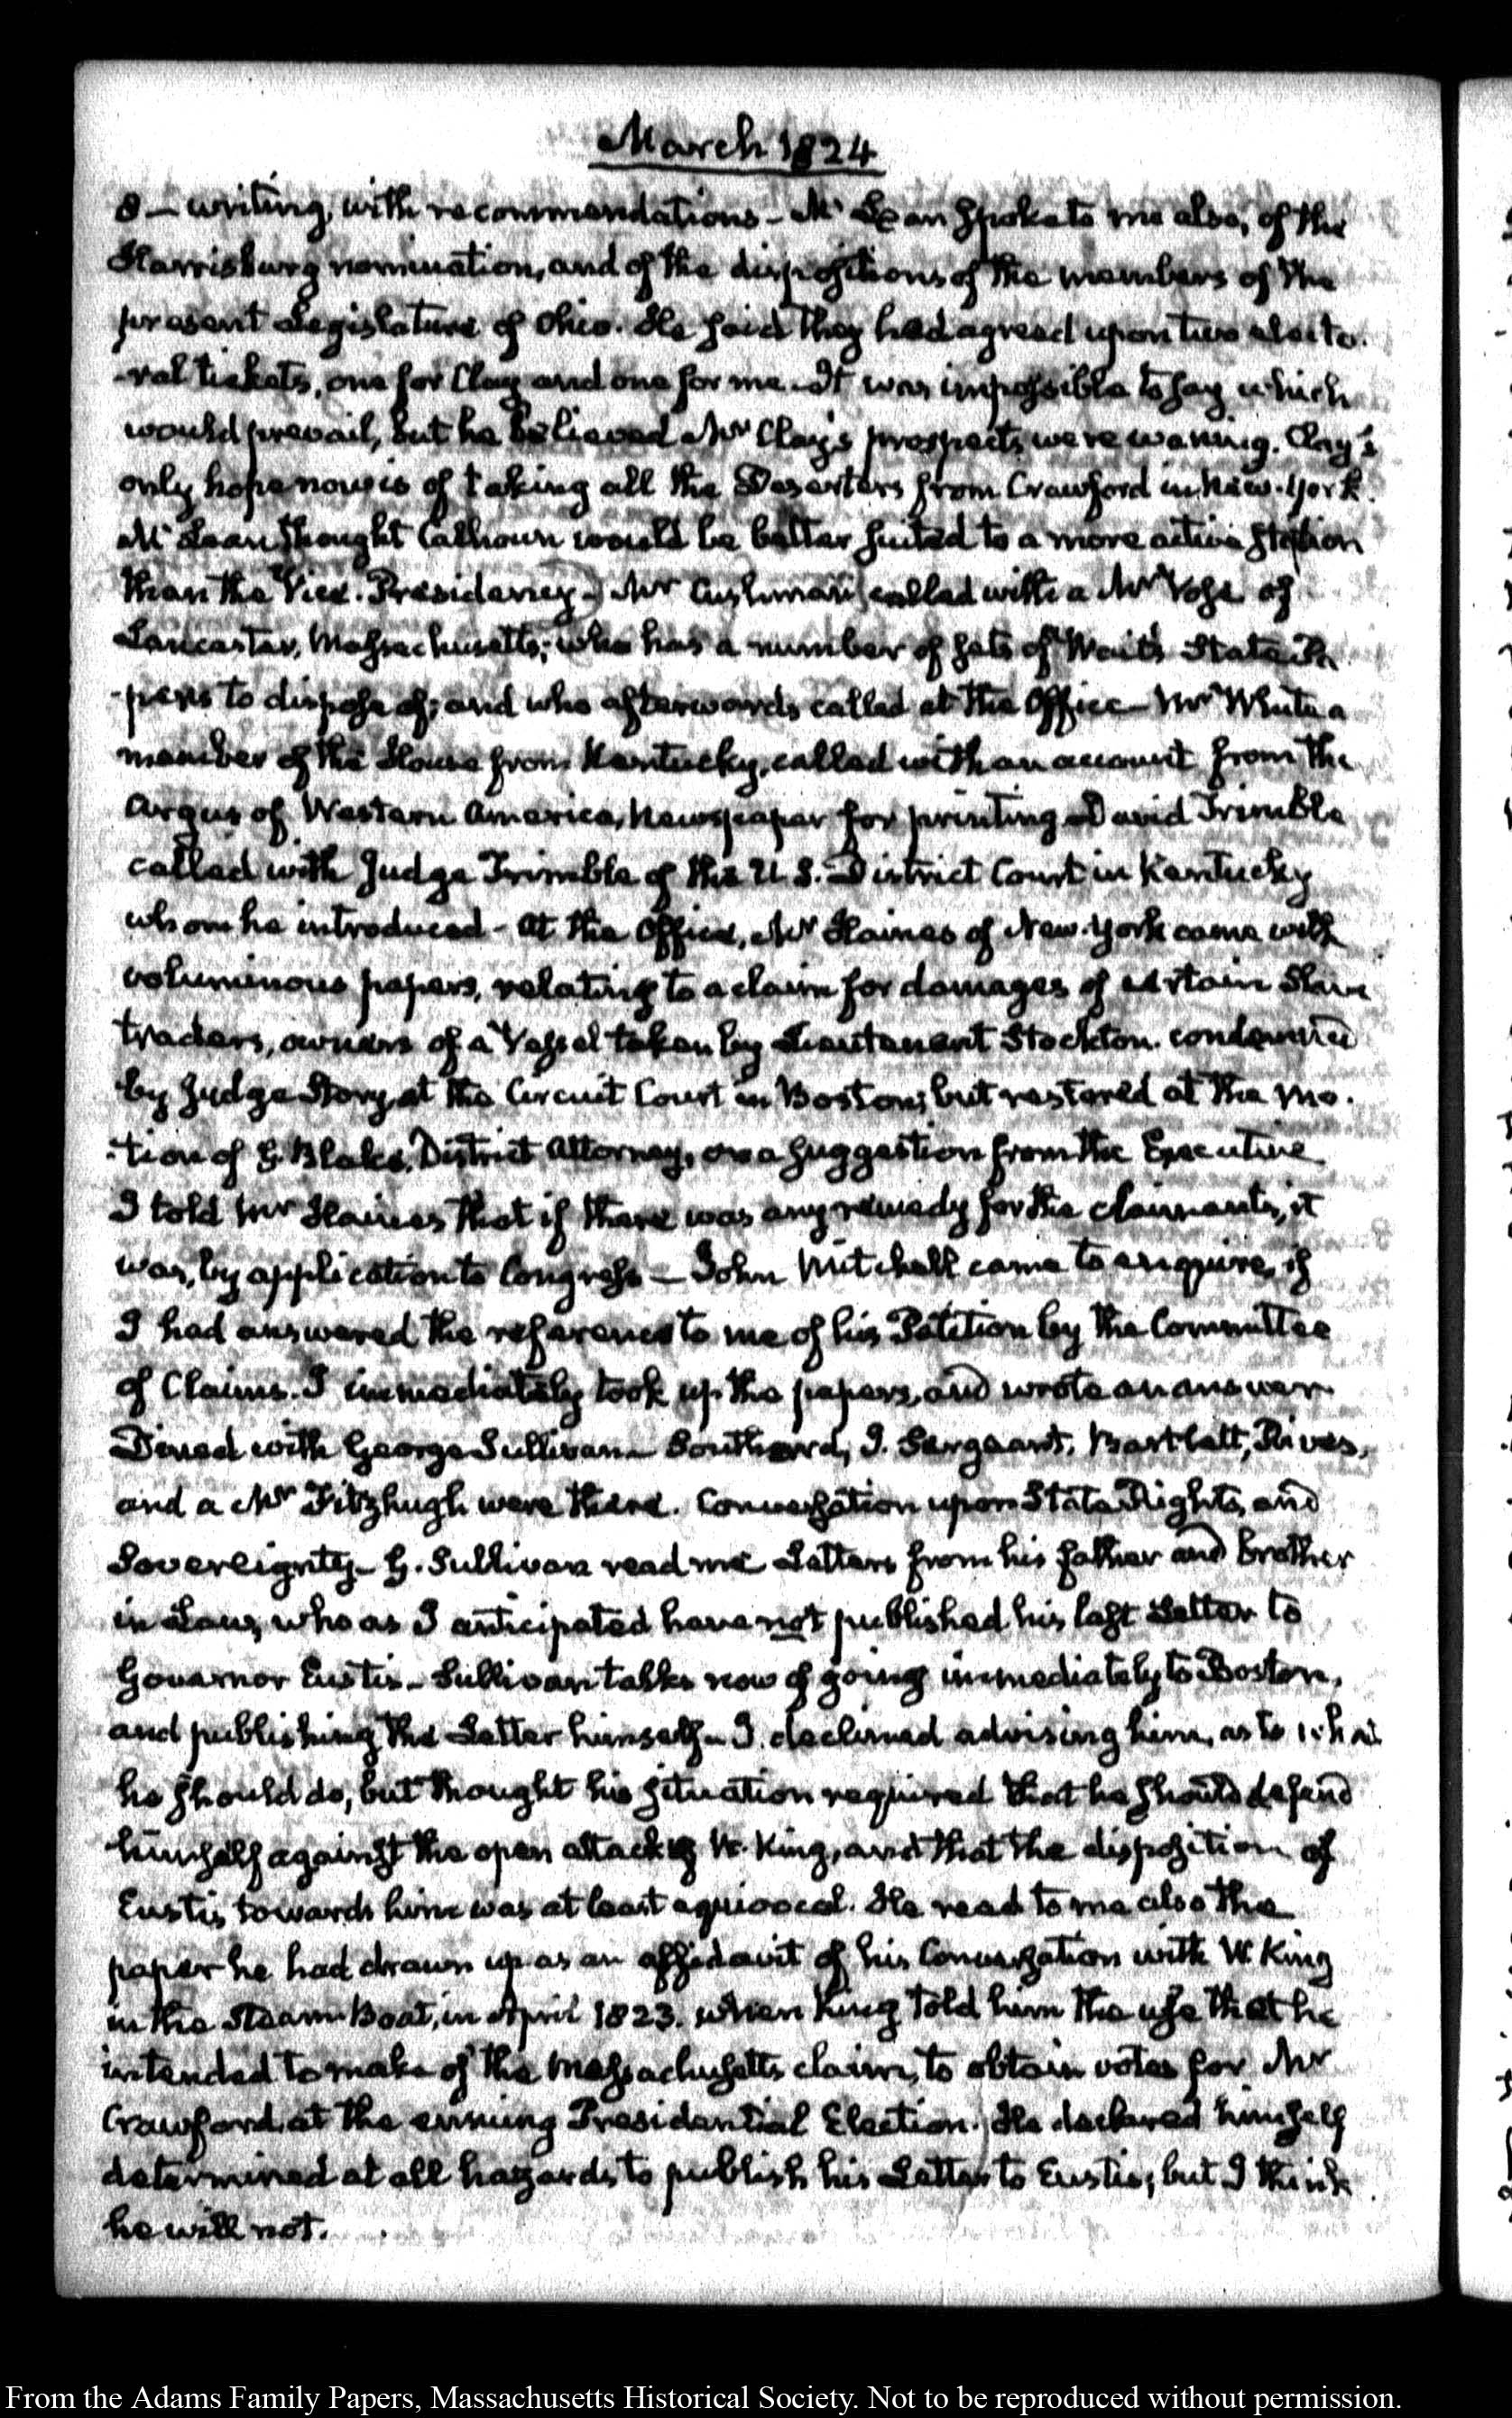 March 1824
8 — writing, with recommendations — McLean spoke to me also, of the
Harrisburg nomination, and of the dispositions of the members of the
present Legislature of Ohio. He said they had agreed upon two electo-
-ral tickets, one for Clay and one for me. It was impossible to say which
would prevail, but he believed Mr Clay's prospects were waning. Clay's
only hope now is of taking all the Deserters from Crawford in New-York.
McLean thought Calhoun would be better suited to a more active station
than the Vice-Presidency — Mr Cushman called with a Mr Vose of
Lancaster, Massachusetts; who has a number of sets of Wait's State Pa
-pers to dispose of; and who afterwards called at the Office — Mr White a
member of the House from Kentucky, called with an account from the
Argus of Western America, Newspaper for printing. David Trimble
called with Judge Trimble of the U.S. District Court in Kentucky
whom he introduced — At the Office, Mr Haines of New-York came with
voluminous papers, relating to a claim for damages of certain Slave
traders, owners of a Vessel taken by Lieutenant Stockton. condemned
by Judge Story, at the Circuit Court in Boston; but restored at the mo-
-tion of G. Blake, District Attorney, on a suggestion from the Executive
I told Mr Haines that if there was any remedy for the claimants, it
was, by application to Congress — John Mitchell came to enquire, if
I had answered the reference to me of his Petition by the Committee
of Claims. I immediately took up the papers, and wrote an answer
Dined with George Sullivan — Southard, J. Sergeant, Bartlett, Rives,
and a Mr Fitzhugh were there. Conversation upon State Rights, and
Sovereignty — G. Sullivan read me Letters from his father and brother
in Law, who as I anticipated have not published his last Letter to
Governor Eustis — Sullivan talks now of going immediately to Boston,
and publishing the Letter himself — I declined advising him, as to what
he should do, but thought his situation required that he should defend
himself against the open attack of W. King, and that the disposition of
Eustis towards him was at least equivocal. He read to me also the
paper he had drawn up as an affidavit of his Conversation with W. King
in the Steam-Boat, in April 1823. when King told him the use that he
intended to make of the Massachusetts claim, to obtain votes for Mr
Crawford, at the ensuing Presidential Election. He declared himself
determined at all hazards to publish his Letter to Eustis; but I think
he will not.
From the Adams Family Papers, Massachusetts Historical Society. Not to be reproduced without permission.